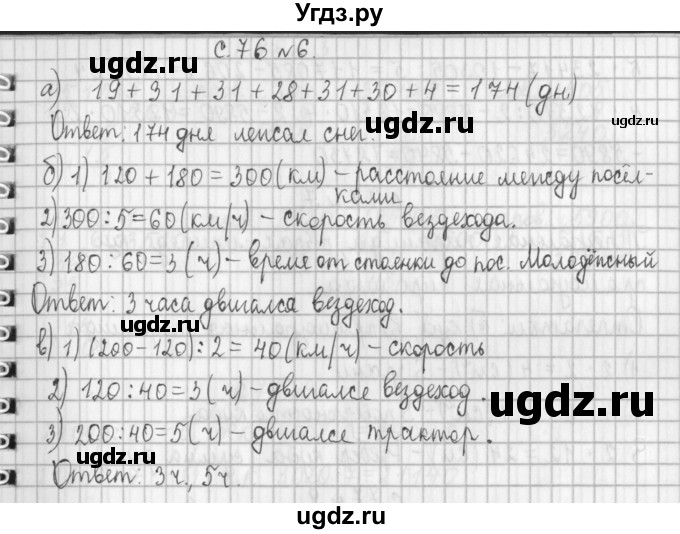 Угдз.ру
с. 76 №6.
ugdz.ru
ugdz.ru
а) 19 + 31 + 31 + 28 + 31 + 30 + 4 = 174 (дн)
Ответ: 174 дня лежал снег.
ugdz.ru
ugdz.ru
б) 1) 120 + 180 = 300 (км) – расстояние между посёл-
ками
2) 300 : 5 = 60 (км/ч) – скорость вездехода.
ugdz.ru
ugdz.ru
3) 180 : 60 = 3 (ч) – время от стоянки до пос. Молодёжный
Ответ: 3 часа двигался вездеход.
ugdz.ru
ugdz.ru
в) 1) (200 – 120) : 2 = 40 (км/ч) – скорость
2) 120 : 40 = 3 (ч) – двигался вездеход.
ugdz.ru
3) 200 : 40 = 5 (ч) – двигался трактор.
ugdz.ru
ugdz.ru
Ответ: 3ч., 5ч.
ugdz.ru